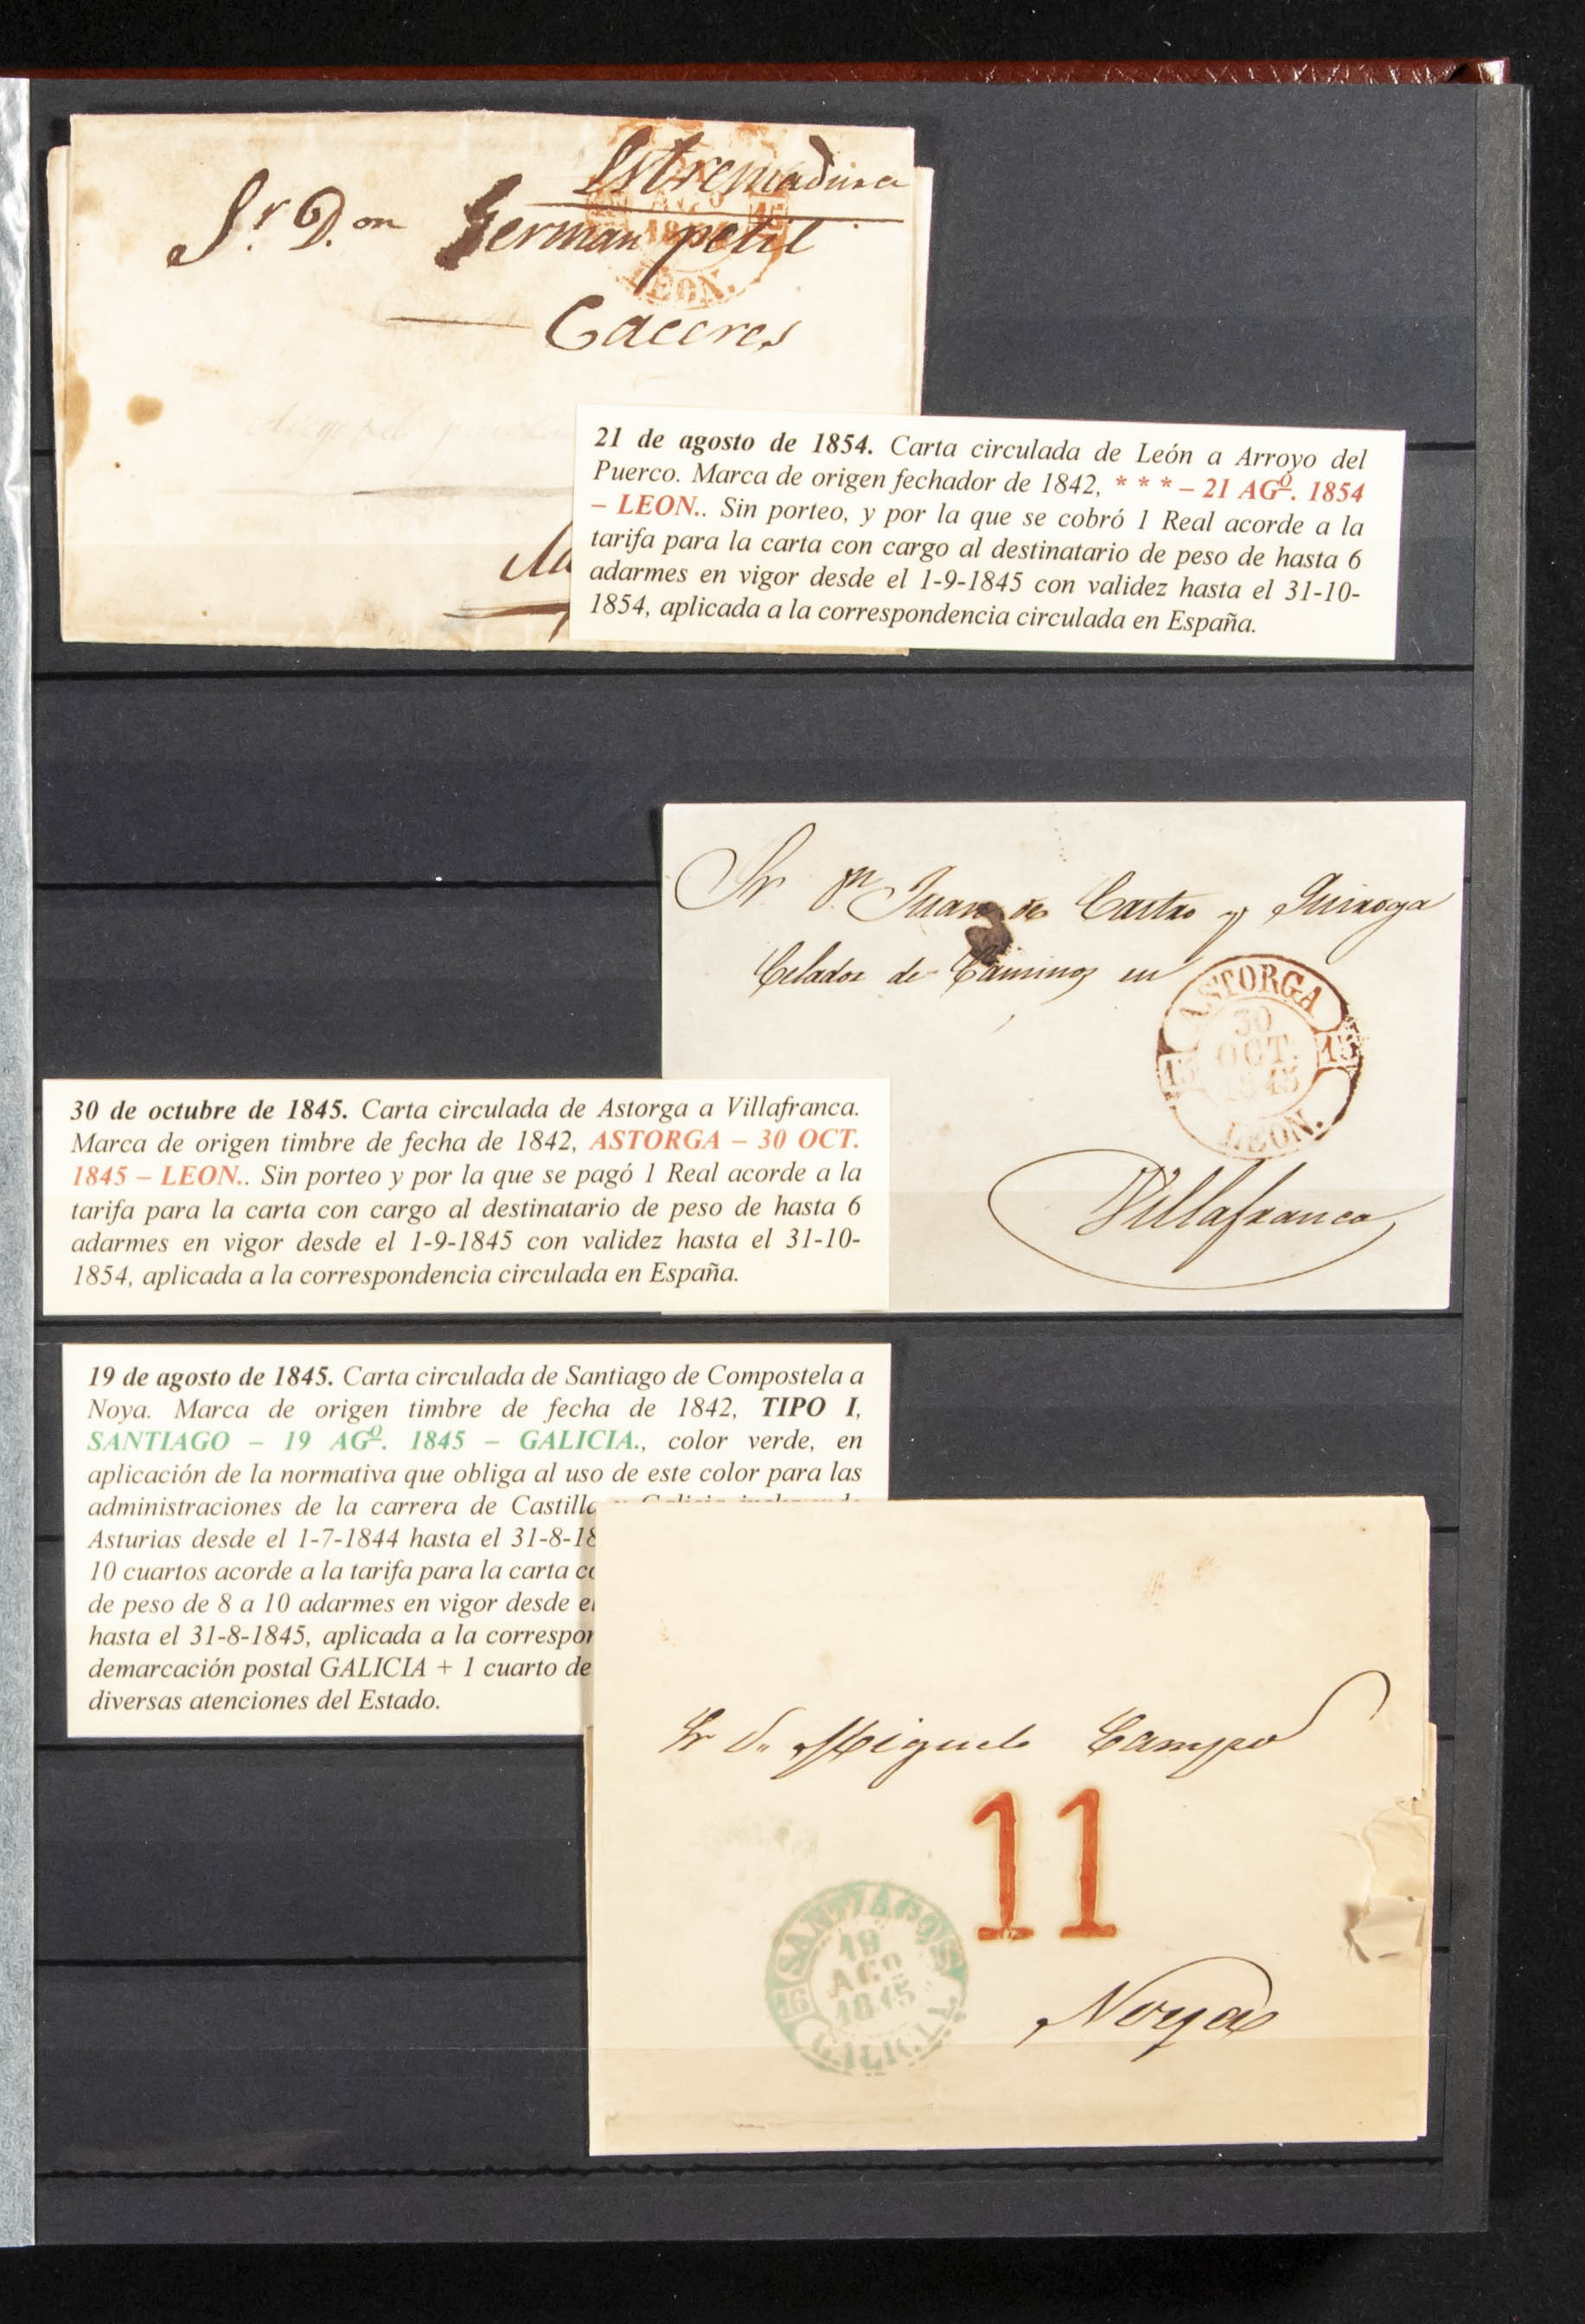 Estremadura
Sr. D.on German petit
Caceres
21 de agosto de 1854. Carta circulada de León a Arroyo del
Puerco. Marca de origen fechador de 1842, * * * – 21 AGº. 1854
– LEON.. Sin porteo, y por la que se cobró 1 Real acorde a la
tarifa para la carta con cargo al destinatario de peso de hasta 6
adarmes en vigor desde el 1-9-1845 con validez hasta el 31-10-
1854, aplicada a la correspondencia circulada en España.
LEON.
Sr Dn Juan de Castro y Quiroga
Celador de Caminos en
ASTORGA
30
OCT.
1845
15
15
LEON.
Villafranca
30 de octubre de 1845. Carta circulada de Astorga a Villafranca.
Marca de origen timbre de fecha de 1842, ASTORGA – 30 OCT.
1845 – LEON.. Sin porteo y por la que se pagó 1 Real acorde a la
tarifa para la carta con cargo al destinatario de peso de hasta 6
adarmes en vigor desde el 1-9-1845 con validez hasta el 31-10-
1854, aplicada a la correspondencia circulada en España.
19 de agosto de 1845. Carta circulada de Santiago de Compostela a
Noya. Marca de origen timbre de fecha de 1842, TIPO I,
SANTIAGO – 19 AGº. 1845 – GALICIA., color verde, en
aplicación de la normativa que obliga al uso de este color para las
administraciones de la carrera de Castilla
Asturias desde el 1-7-1844 hasta el 31-8-18
10 cuartos acorde a la tarifa para la carta co
de peso de 8 a 10 adarmes en vigor desde el
hasta el 31-8-1845, aplicada a la correspon
demarcación postal GALICIA + 1 cuarto de
diversas atenciones del Estado.
Sr D. Miguel Campo
11
SANTIAGO
19
AGº
1845
16
GALICIA
Noya